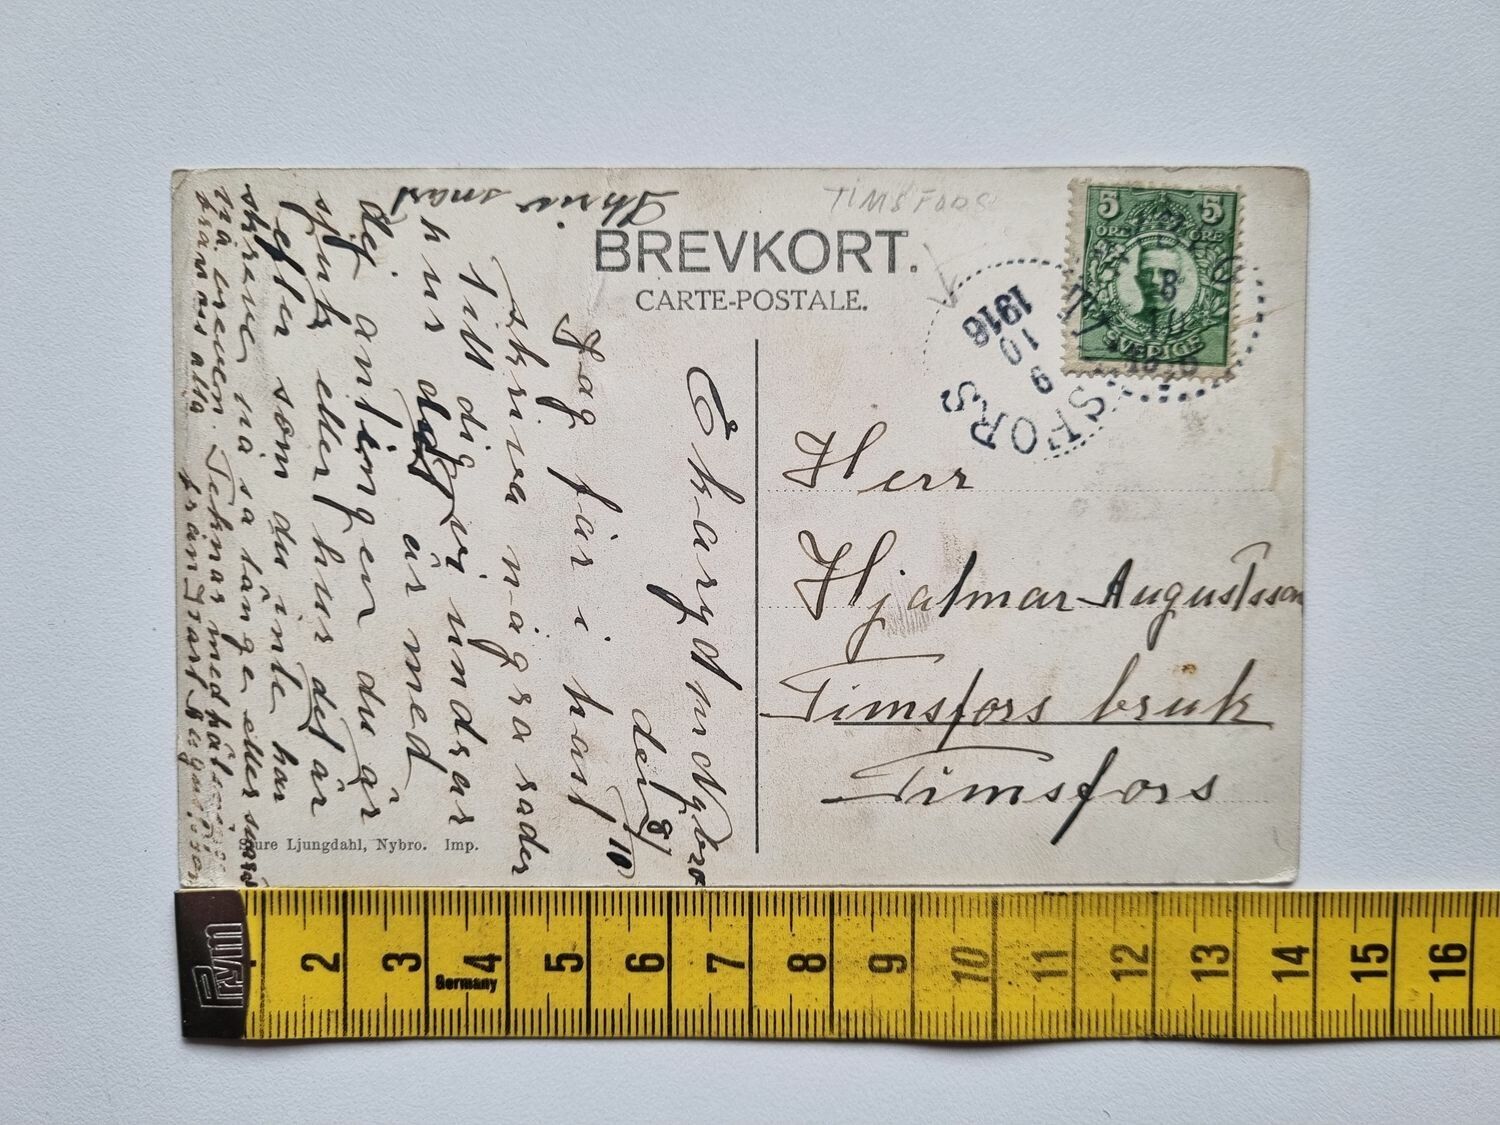 TIMSFORS
BREVKORT.
CARTE-POSTALE.
5 5
ÖRE ÖRE
SVERIGE
SFORS
9
10
1916
Herr
Hjalmar Augustsson
Timsfors bruk
Timsfors
Nybro
den 8/10
Jag får i hast
skriva några rader
till dig vi undrar
hur det är med
dej antingen du är
sjuk eller hur det är
efter som du inte har
skrevet nå så länge eller svarat
på breven. Tecknar med hälsningar
från oss alla från
Skriv snart
Sture Ljungdahl, Nybro. Imp.
Prym
2 3 4 5 6 7 8 9 10 11 12 13 14 15 16
Germany